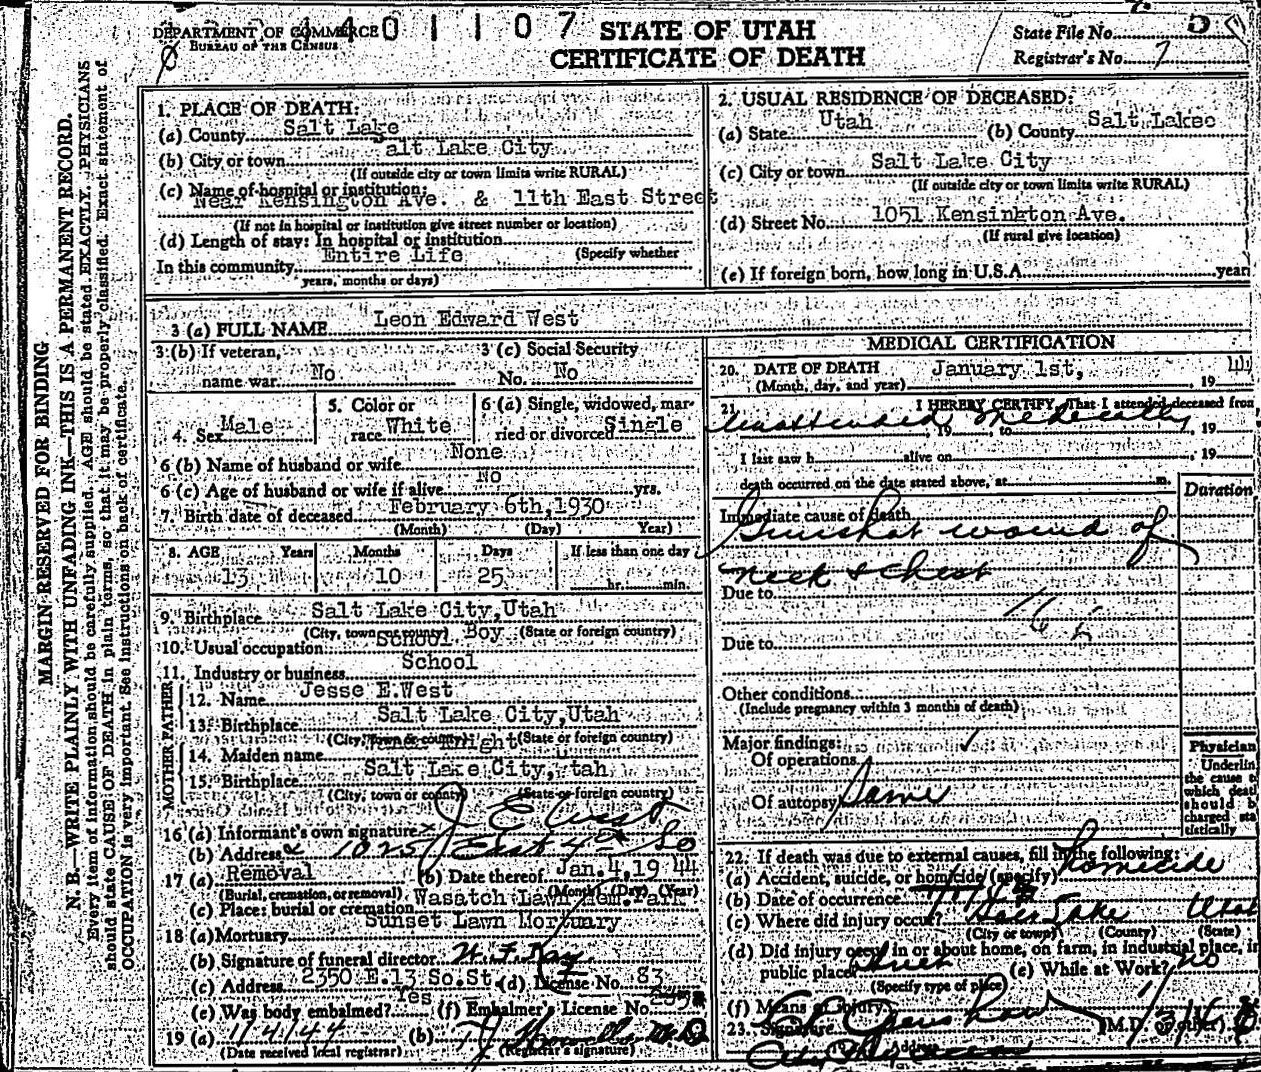 DEPARTMENT OF COMMERCE
BUREAU OF THE CENSUS
1 4 0 1 1 0 7
STATE OF UTAH
CERTIFICATE OF DEATH
State File No. 5
Registrar's No. 7
MARGIN RESERVED FOR BINDING
N. B.—WRITE PLAINLY WITH UNFADING INK—THIS IS A PERMANENT RECORD.
Every item of information should be carefully supplied. AGE should be stated EXACTLY. PHYSICIANS
should state CAUSE OF DEATH in plain terms, so that it may be properly classified. Exact statement of
OCCUPATION is very important. See instructions on back of certificate.
1. PLACE OF DEATH:
(a) County Salt Lake
(b) City or town alt Lake City
(If outside city or town limits write RURAL)
(c) Name of hospital or institution:
Near Kensington Ave. & 11th East Street
(If not in hospital or institution give street number or location)
(d) Length of stay: In hospital or institution
(Specify whether
In this community Entire Life
years, months or days)
2. USUAL RESIDENCE OF DECEASED:
(a) State Utah (b) County Salt Lakee
(c) City or town Salt Lake City
(If outside city or town limits write RURAL)
(d) Street No. 1051 Kensington Ave.
(If rural give location)
(e) If foreign born, how long in U.S.A. year
3 (a) FULL NAME Leon Edward West
3 (b) If veteran, name war No
3 (c) Social Security No. No
4. Sex Male
5. Color or race White
6 (a) Single, widowed, married or divorced Single
6 (b) Name of husband or wife None
6 (c) Age of husband or wife if alive No yrs.
7. Birth date of deceased February 6th, 1930
(Month) (Day) Year)
8. AGE Years Months Days If less than one day
13 10 25 hr. min.
9. Birthplace Salt Lake City, Utah
(City, town or county) (State or foreign country)
10. Usual occupation School Boy
11. Industry or business School
FATHER
12. Name Jesse E. West
13. Birthplace Salt Lake City, Utah
(City, town or county) (State or foreign country)
MOTHER
14. Maiden name Knight
15. Birthplace Salt Lake City, Utah
(City, town or county) (State or foreign country)
16 (a) Informant's own signature x J E West
(b) Address 1025 East 4th So
17 (a) Removal (b) Date thereof Jan. 4, 19 44
(Burial, cremation, or removal) (Month) (Day) (Year)
(c) Place: burial or cremation Wasatch Lawn Mem. Park
18 (a) Mortuary Sunset Lawn Mortuary
(b) Signature of funeral director
(c) Address 2350 E. 13 So. St. (d) License No. 83
(e) Was body embalmed? Yes (f) Embalmer's License No.
19 (a) 1/4/44 (b)
(Date received local registrar) (Registrar's signature)
MEDICAL CERTIFICATION
20. DATE OF DEATH January 1st, , 19 44
(Month, day, and year)
21. I HEREBY CERTIFY, That I attended deceased from
Unattended Medically , 19 , to , 19
I last saw h alive on , 19
death occurred on the date stated above, at m.
Duration
Immediate cause of death
Gunshot wound of
neck & chest
Due to
Due to
Other conditions
(Include pregnancy within 3 months of death)
Major findings:
Of operations
Of autopsy Same
Physician
Underlin
the cause t
which deat
should b
charged sta
tistically
22. If death was due to external causes, fill in the following:
(a) Accident, suicide, or homicide (specify) Homicide
(b) Date of occurrence
(c) Where did injury occur? Salt Lake Utah
(City or town) (County) (State)
(d) Did injury occur in or about home, on farm, in industrial place, in
public place? Street (e) While at Work? no
(Specify type of place)
(f) Means of injury
23. Signature (M.D. or other)
Address